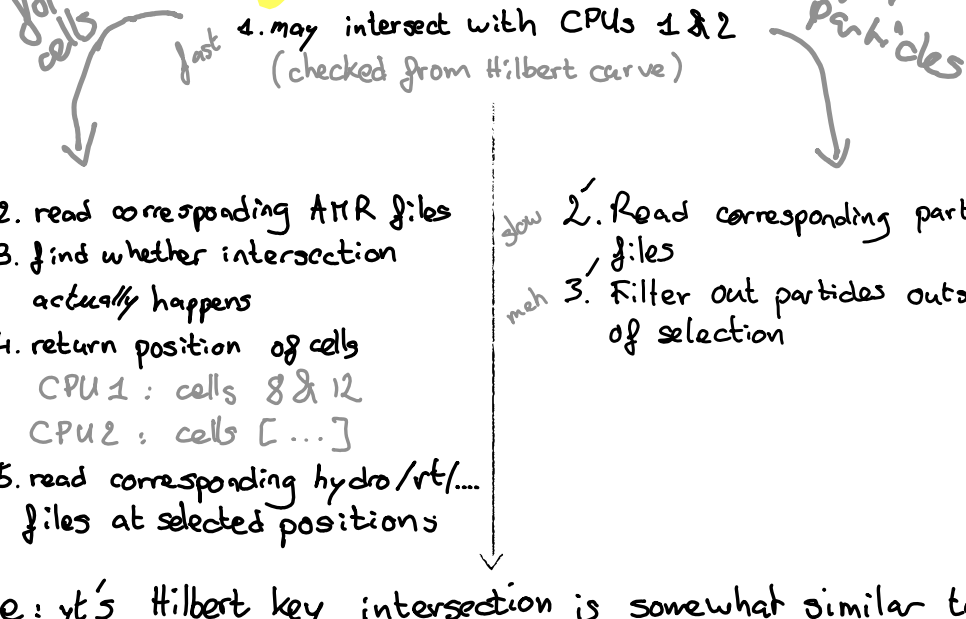 for
cells
fast
1. may intersect with CPUs 1 & 2
(checked from Hilbert curve)
particles
2. read corresponding AMR files
3. find whether intersection
actually happens
4. return position of cells
CPU 1 : cells 8 & 12
CPU 2 : cells [...]
5. read corresponding hydro/rt/....
files at selected positions
slow
2'. Read corresponding part
files
meh
3'. Filter out particles outs
of selection
e: yt's Hilbert key intersection is somewhat similar t